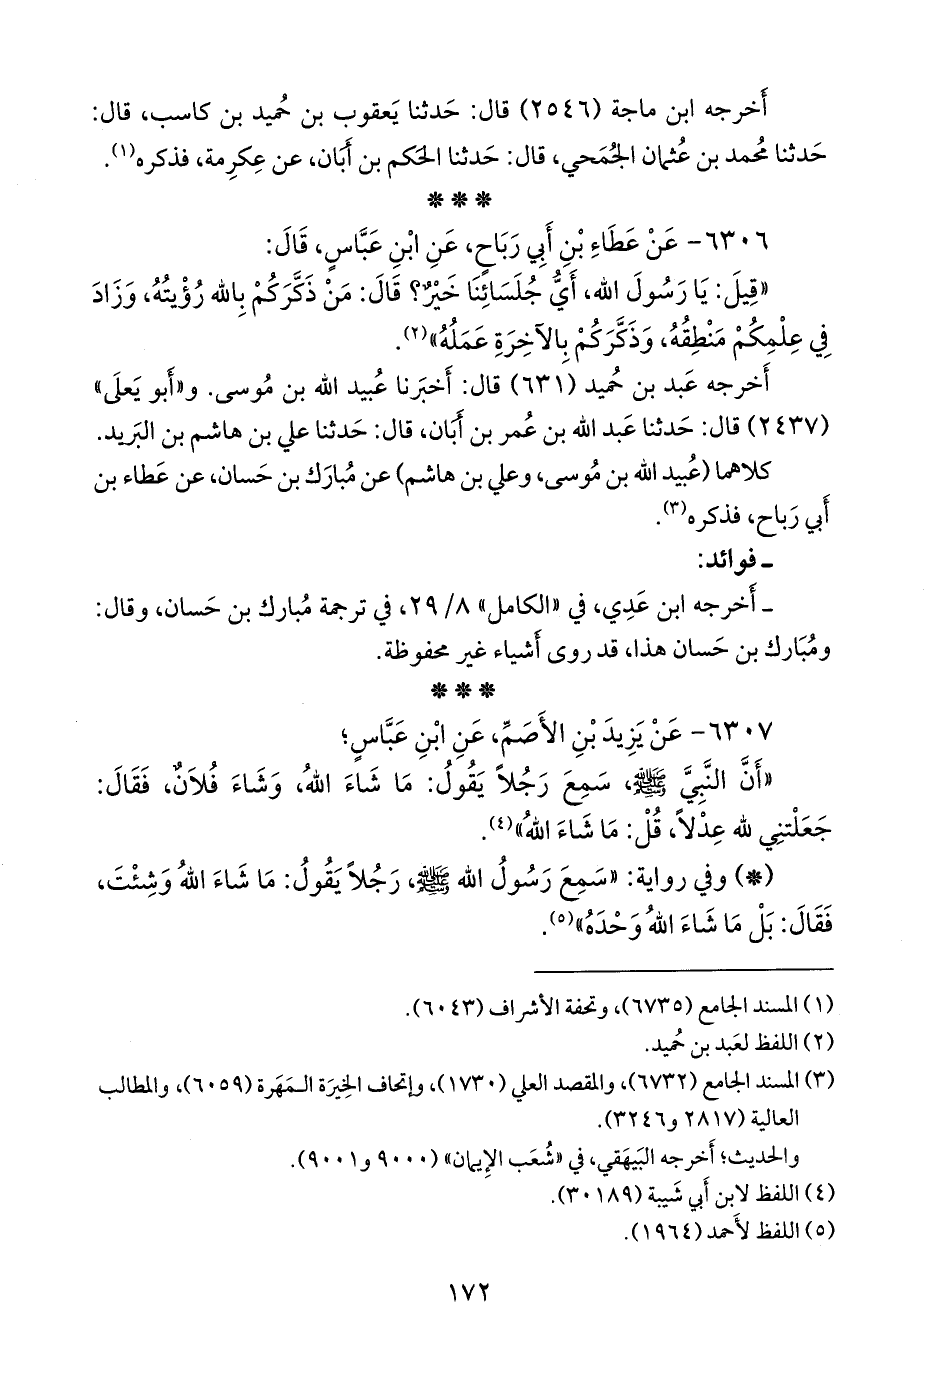 أَخرجه ابن ماجة (٢٥٤٦) قال: حَدثنا يَعقوب بن حُميد بن كاسب، قال:
حَدثنا مُحمد بن عُثمان الجُمَحي، قال: حَدثنا الحَكم بن أَبَان، عن عِكرِمة، فذكره(١).
* * *
٦٣٠٦- عَنْ عَطَاءِ بْنِ أَبِي رَبَاحٍ، عَنِ ابْنِ عَبَّاسٍ، قَالَ:
«قِيلَ: يَا رَسُولَ الله، أَيُّ جُلَسَائِنَا خَيْرٌ؟ قَالَ: مَنْ ذَكَّرَكُمْ بِالله رُؤْيَتُهُ، وَزَادَ
فِي عِلْمِكُمْ مَنْطِقُهُ، وَذَكَّرَكُمْ بِالآخِرَةِ عَمَلُهُ»(٢).
أَخرجه عَبد بن حُميد (٦٣١) قال: أَخبَرنا عُبيد الله بن مُوسى. و«أَبو يَعلَى»
(٢٤٣٧) قال: حَدثنا عَبد الله بن عُمر بن أَبَان، قال: حَدثنا علي بن هاشم بن البَريد.
كلاهما (عُبيد الله بن مُوسى، وعلي بن هاشم) عن مُبارك بن حَسان، عن عَطاء بن
أَبي رَباح، فذكره(٣).
ـ فوائد:
ـ أَخرجه ابن عَدِي، في «الكامل» ٨/ ٢٩، في ترجمة مُبارك بن حَسان، وقال:
ومُبَارك بن حَسان هذا، قد روى أَشياء غير محفوظة.
* * *
٦٣٠٧- عَنْ يَزِيدَ بْنِ الأَصَمِّ، عَنِ ابْنِ عَبَّاسٍ؛
«أَنَّ النَّبِيَّ ﷺ، سَمِعَ رَجُلاً يَقُولُ: مَا شَاءَ اللهُ، وَشَاءَ فُلاَنٌ، فَقَالَ:
جَعَلْتَنِي لله عِدْلاً، قُلْ: مَا شَاءَ اللهُ»(٤).
(*) وفي رواية: «سَمِعَ رَسُولُ الله ﷺ، رَجُلاً يَقُولُ: مَا شَاءَ اللهُ وَشِئْتَ،
فَقَالَ: بَلْ مَا شَاءَ اللهُ وَحْدَهُ»(٥).
(١) المسند الجامع (٦٧٣٥)، وتحفة الأشراف (٦٠٤٣).
(٢) اللفظ لعَبد بن حُميد.
(٣) المسند الجامع (٦٧٣٢)، والمقصد العلي (١٧٣٠)، وإتحاف الخِيرَة المَهَرة (٦٠٥٩)، والمطالب
العالية (٢٨١٧ و٣٢٤٦).
والحديث؛ أَخرجه البَيهَقي، في «شُعَب الإيمان» (٩٠٠٠ و٩٠٠١).
(٤) اللفظ لابن أَبي شَيبة (٣٠١٨٩).
(٥) اللفظ لأَحمد (١٩٦٤).
١٧٢